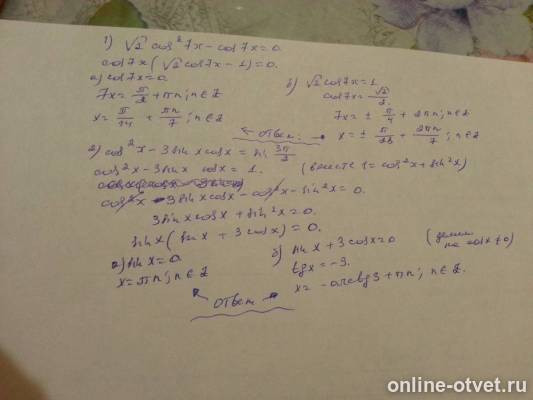 1) √2 cos²7x - cos7x = 0.
cos7x(√2cos7x - 1) = 0.
а) cos7x = 0.
7x = π/2 + πn; n∈Z
x = π/14 + πn/7; n∈Z
б) √2cos7x = 1
cos7x = √2/2
7x = ± π/4 + 2πn; n∈Z
x = ± π/28 + 2πn/7; n∈Z
ответ
2) cos²x - 3sinx cosx = sin 3π/2
cos²x - 3sinx cosx = 1. (вместо 1 = cos²x + sin²x)
cos²x - 3sinx cosx - cos²x - sin²x = 0.
3sinx cosx + sin²x = 0.
sinx(sinx + 3cosx) = 0.
а) sinx = 0.
x = πn; n∈Z
б) sinx + 3cosx = 0 (делим на cosx ≠ 0)
tgx = -3.
x = -arctg3 + πn; n∈Z.
ответ
online-otvet.ru